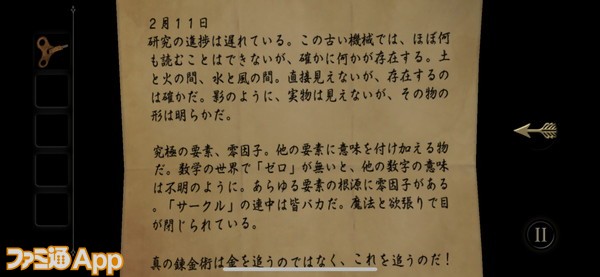 ２月１１日
研究の進捗は遅れている。この古い機械では、ほぼ何
も読むことはできないが、確かに何かが存在する。土
と火の間、水と風の間。直接見えないが、存在するの
は確かだ。影のように、実物は見えないが、その物の
形は明らかだ。
究極の要素、零因子。他の要素に意味を付け加える物
だ。数学の世界で「ゼロ」が無いと、他の数字の意味
は不明のように。あらゆる要素の根源に零因子があ
る。「サークル」の連中は皆バカだ。魔法と欲張りで目
が閉じられている。
真の錬金術は金を追うのではなく、これを追うのだ！
ファミ通App